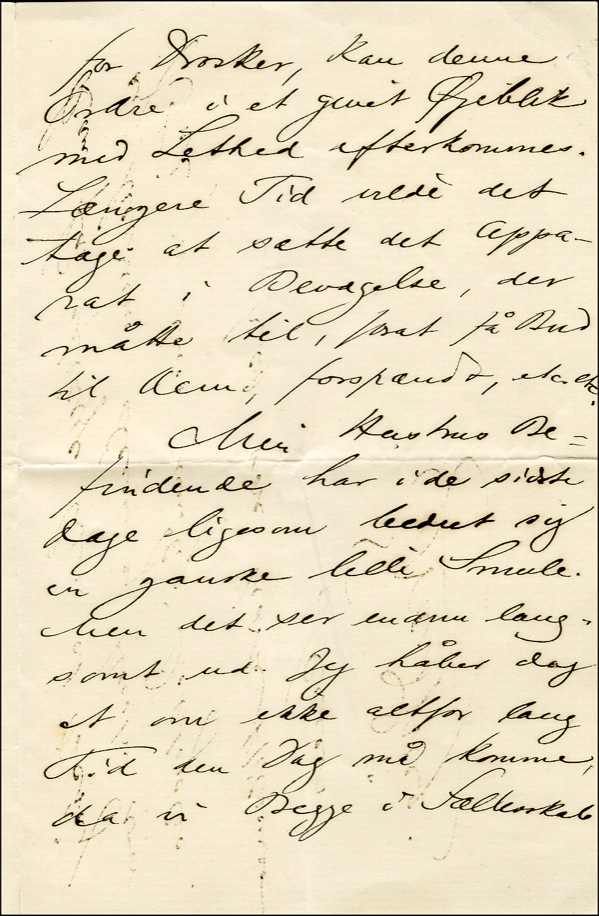 for Drosker, kan denne
Ordre i et givet Øjeblik
med Lethed efterkommes.
Længere Tid vilde det
tage at sætte det Appa-
rat i Bevægelse, der
måtte til, forat få Bud
til dem, forspændt, etc. etc.
Min Hustrus Be=
findende har i de sidste
dage ligesom bedret sig
en ganske lille Smule.
Men det ser endnu lang-
somt ud. Jeg håber dog
at om ikke altfor lang
Tid den Dag må komme,
da vi Begge i Fællesskab